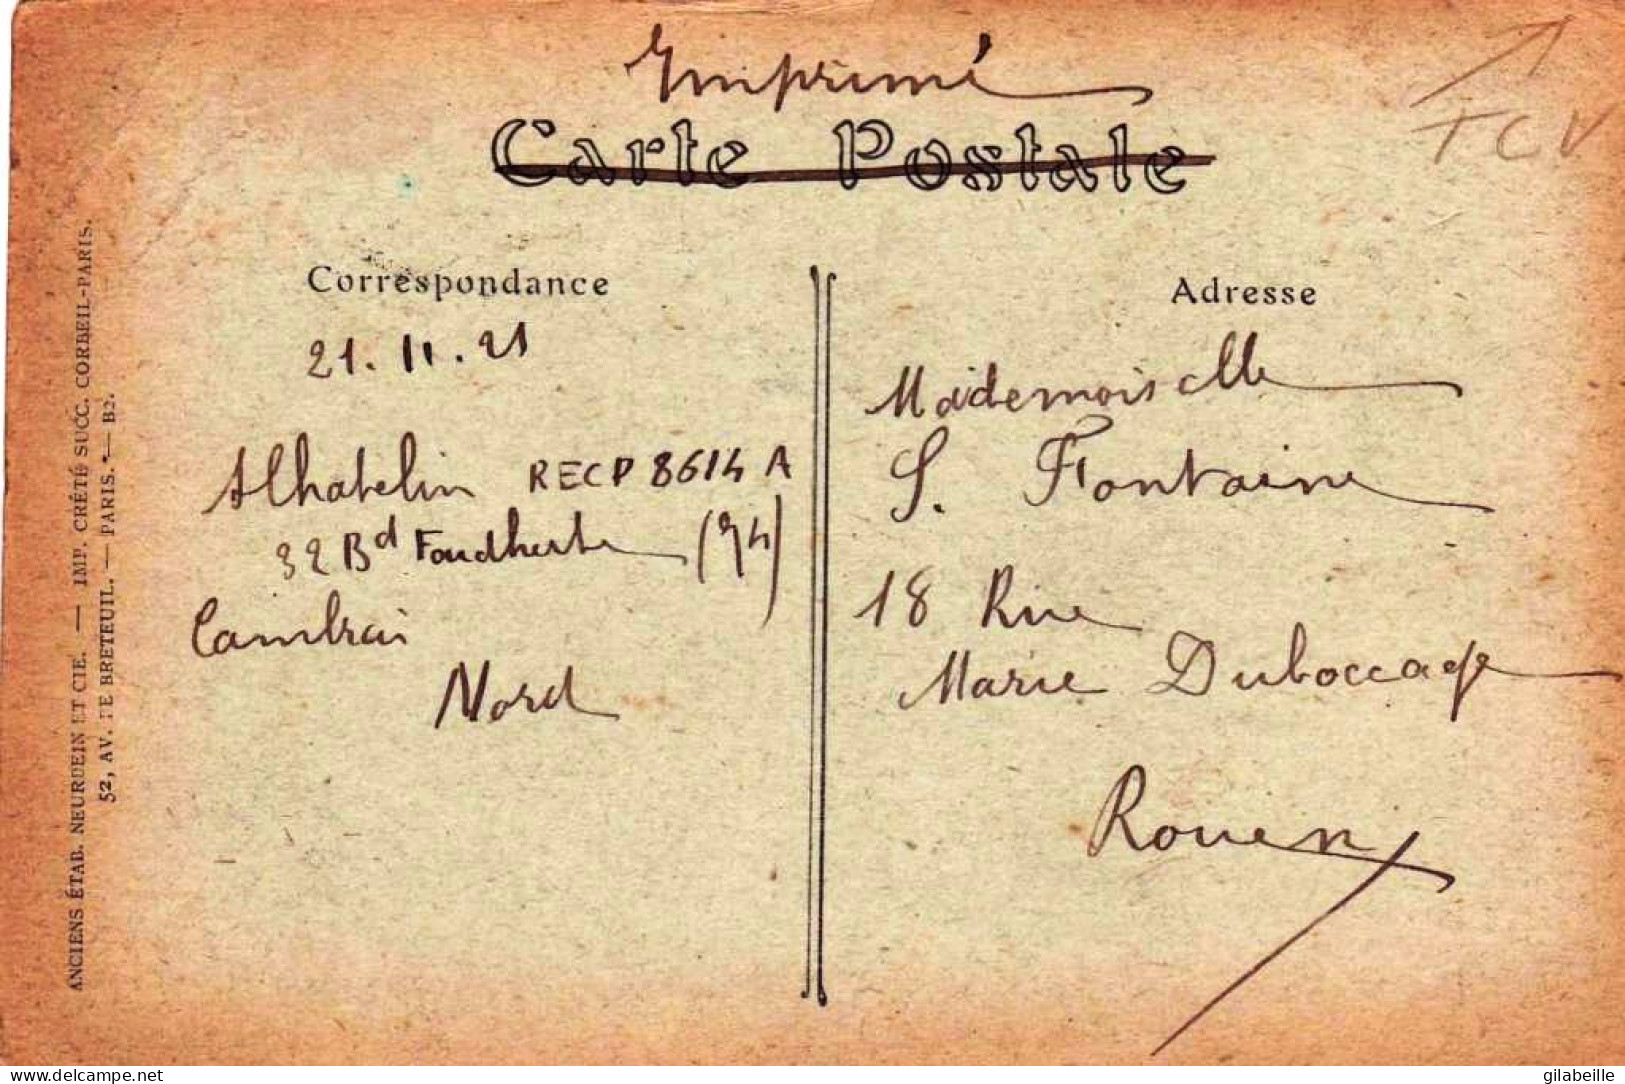 Imprimé
Carte Postale
TCV
Correspondance
21.11.21
RECP 8614 A
32 Bd
Cambrai
Nord
Adresse
Mademoiselle
S. Fontaine
18 Rue
Marie Duboccage
Rouen
ANCIENS ÉTAB. NEURDEIN ET CIE. — IMP. CRÉTÉ SUCC. CORBEIL-PARIS.
52, AV. DE BRETEUIL. — PARIS. — B2.
www.delcampe.net
gilabeille